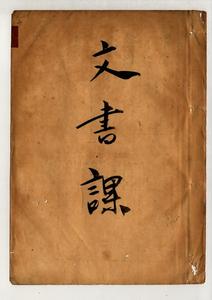 文書課